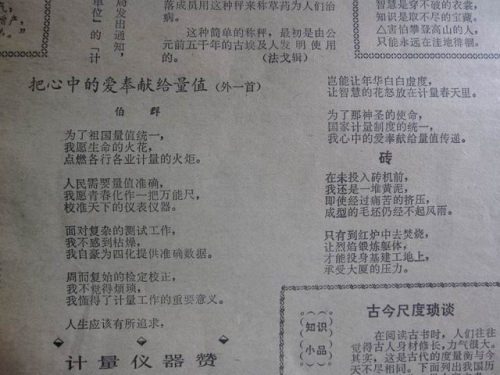 局发出通知,
单位“计
落成员用这种秤来称草药为人们治
病。
这种简单的称秤，最初是由公
元前五千年的古埃及人发明使用
的。 （法戈辑）
智慧是穿不破的衣裳，
知识是取不尽的宝藏。
△害怕攀登高山的人，
只能永远在洼地徘徊。
把心中的爱奉献给量值（外一首）
伯群
为了祖国量值统一，
我愿生命的火花，
点燃各行各业计量的火炬。
人民需要量值准确，
我愿青春化作一把万能尺，
校准天下的仪表仪器。
面对复杂的测试工作，
我不感到枯燥，
我自豪为四化提供准确数据。
周而复始的检定校正，
我不觉得烦琐，
我懂得了计量工作的重要意义。
人生应该有所追求，
岂能让年华白白虚度，
让智慧的花怒放在计量春天里。
为了那神圣的使命，
国家计量制度的统一，
我心中的爱奉献给量值传递。
砖
在未投入砖机前，
我还是一堆黄泥，
即使经过痛苦的挤压，
成型的毛坯仍经不起风雨。
只有到红炉中去焚烧，
让烈焰锻炼躯体，
才能投身基建工地上，
承受大厦的压力。
计量仪器赞
知识
小品
古今尺度琐谈
在阅读古书时，人们往往
觉得古人身材修长，力气很大。
其实，这是古代的度量衡与今
天不尽相同。下面列出我国历